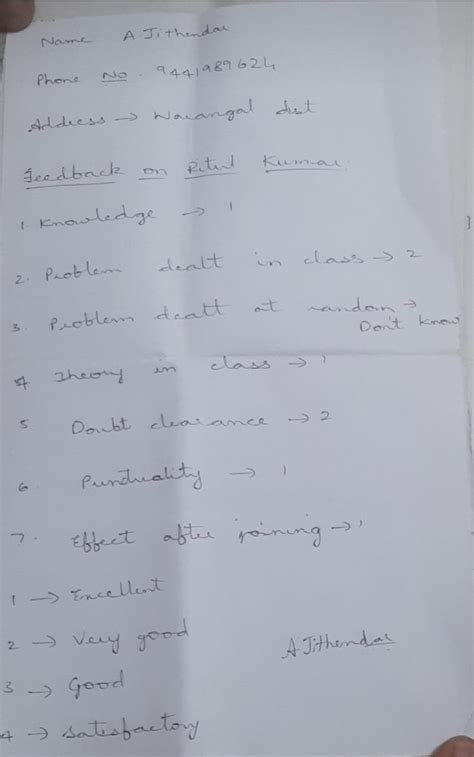 Name A Jithendar
Phone No. 9441989624
Address → Warangal dist
Feedback on Ritul Kumar
1. Knowledge → 1
2. Problem dealt in class → 2
3. Problem dealt at random →
Don't know
4 Theory in class → 1
5 Doubt clearance → 2
6 Punctuality → 1
7. Effect after joining → 1
1 → Excellent
2 → Very good
A. Jithendar
3 → Good
4 → Satisfactory